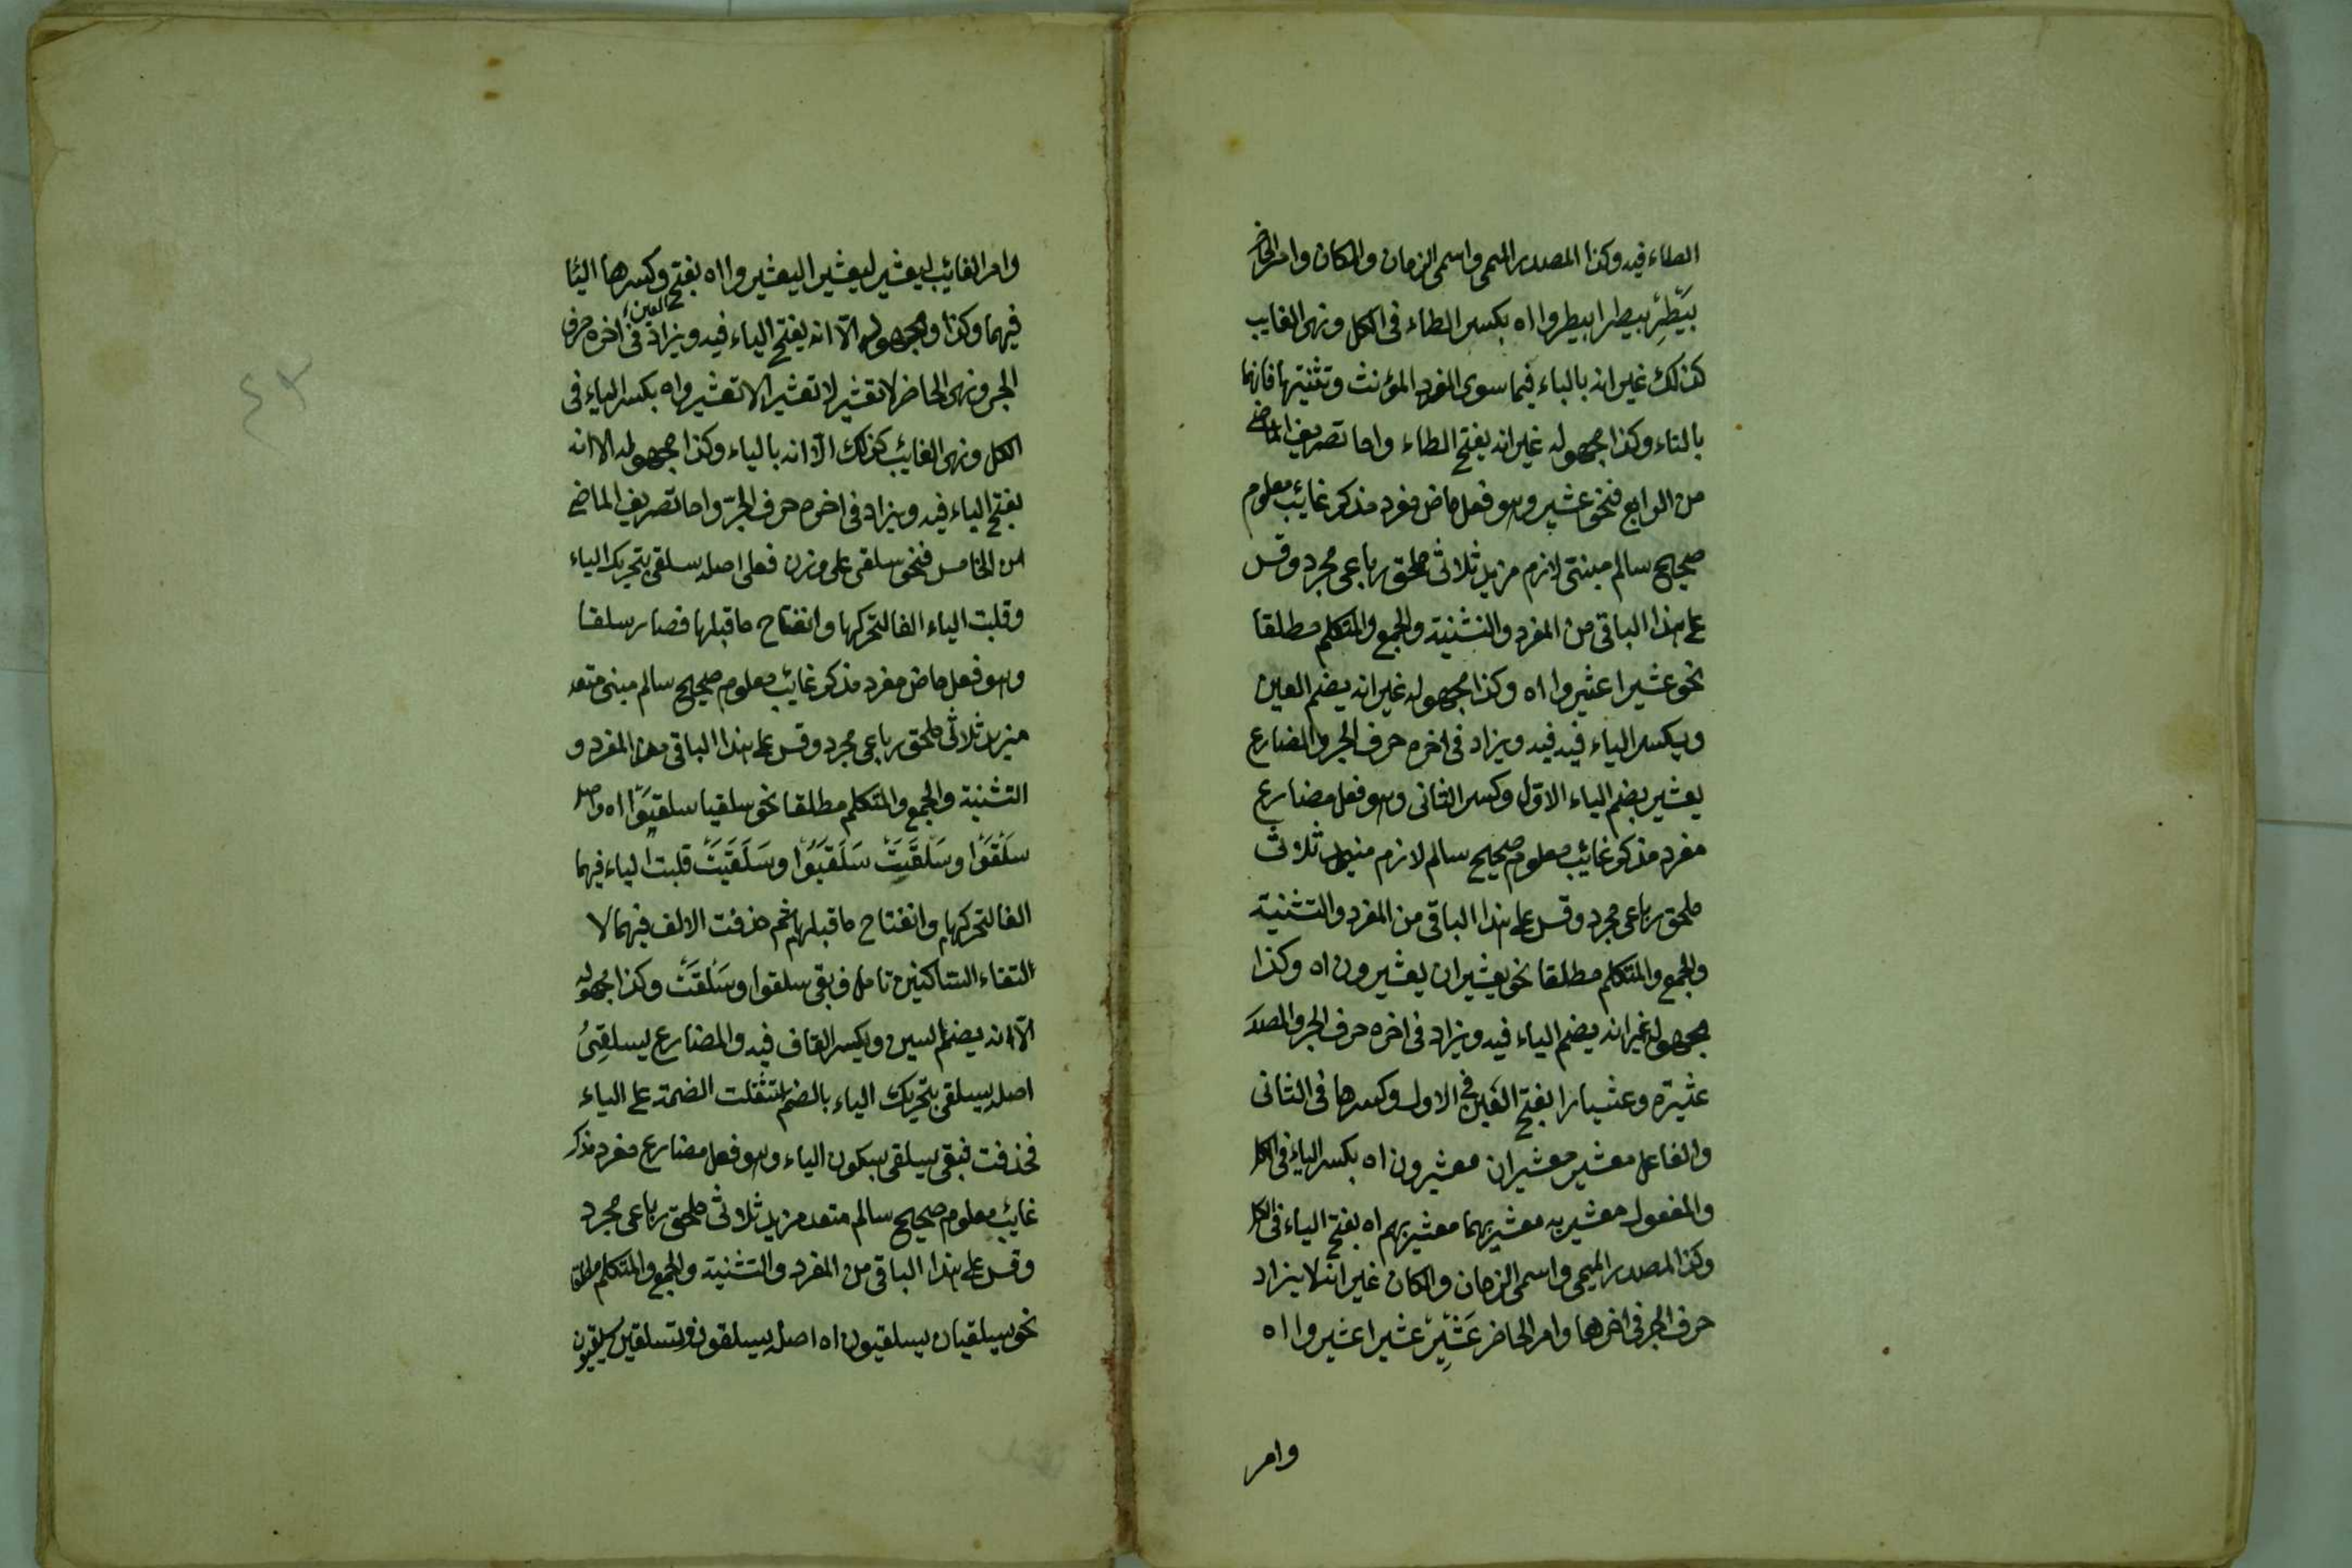 الطاء فيه وكذا المصدر الميمى واسمى الزمان والمكان وامر الحاضر
بَيْطِرْ بيطرا بيطروا اه بكسر الطاء فى الكل ونهى الغايب
كذلك غير انه بالياء فيما سوى المفرد المؤنث وتثنيتها فانهما
بالتاء وكذا مجهوله غير انه يفتح الطاء واما تصريف الماضى
من الرابع فنحو عثير وهو فعل ماض مفرد مذكر غائب معلوم
صحيح سالم مبنى لازم مزيد ثلاثى ملحق رباعى مجرد وقس
على هذا الباقى من المفرد والتثنية والجمع والمتكلم مطلقا
نحو عثيرا عثيروا اه وكذا مجهوله غير انه يضم العين
ويكسر الياء فيه فيه ويزاد فى اخره حرف الجر والمضارع
يعثير بضم الياء الاوّل وكسر الثانى وهو فعل مضارع
مفرد مذكر غائب معلوم صحيح سالم لازم مزيد ثلاثى
ملحق رباعى مجرد وقس على هذا الباقى من المفرد والتثنية
والجمع والمتكلم مطلقا نحو يعثيران يعثيرون اه وكذا
مجهوله غير انه يضم الياء فيه ويزاد فى اخره حرف الجر والمصدر
عثيرة وعثيارا بفتح العين فى الاول وكسرها فى الثانى
والفاعل معثير معثيران معثيرون اه بكسر الياء فى الكل
والمفعول معثير به معثير بهما معثير بهم اه بفتح الياء فى الكل
وكذا المصدر الميمى واسمى الزمان والمكان غير انه لا يزاد
حرف الجر فى اخرهما وامر الحاضر عَثْيِرْ عثيرا عثيروا اه
وامر
وامر الغائب ليعثير ليعثيرا ليعثيروا اه بفتح وكسرها الينا
فيهما وكذا ومجهوله الّا انه يفتح الياء فيه ويزاد فى اخره حرف
الجر ونهى الحاضر لا تعثير لا تعثيرا لا تعثيروا اه بكسر الياء فى
الكل ونهى الغائب كذلك الّا انه بالياء وكذا مجهوله الا انه
بفتح الياء فيه ويزاد فى اخره حرف الجرّ واما تصريف الماضى
من الخامس فنحو سلقى على وزن فعلى اصله سلقى بتحريك الياء
وقلبت الياء الفا لتحركها وانفتاح ما قبلها فصار سلقا
وهو فعل ماض مفرد مذكر غائب معلوم صحيح سالم مبنى متعد
مزيد ثلاثى ملحق رباعى مجرد وقس على هذا الباقى من المفرد و
التثنية والجمع والمتكلم مطلقا نحو سلقيا سلقيوا اه واصل
سَلْقَوْا وسَلْقَتْ سَلْقَيَوُا وسَلْقَيَتْ قلبت الياء فيهما
الفا لتحركها وانفتاح ما قبلها ثم حذفت الالف فيهما لا
لتقاء الساكنين تامل فبقى سلقوا وسَلْقَتْ وكذا مجهوله
الّا انه يضم السين ويكسر القاف فيه والمضارع يسلقِىُ
اصله يسلقى بتحريك الياء بالضم استثقلت الضمة على الياء
فحذفت فبقى يسلقى بسكون الياء وهو فعل مضارع مفرد مذكر
غائب معلوم صحيح سالم متعد مزيد ثلاثى ملحق رباعى مجرد
وقس على هذا الباقى من المفرد والتثنية والجمع والمتكلم مطلقا
نحو يسلقيان يسلقيون اه اصل يسلقون وتسلقين يسلقيون